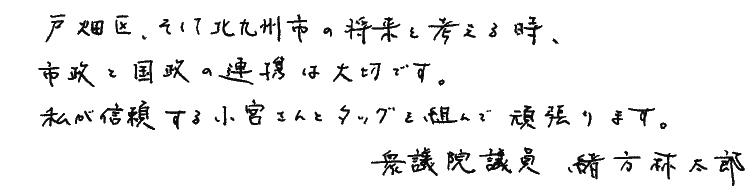 戸畑区、そして北九州市の将来を考える時、
市政と国政の連携は大切です。
私が信頼する小宮さんとタッグを組んで頑張ります。
衆議院議員 緒方林太郎